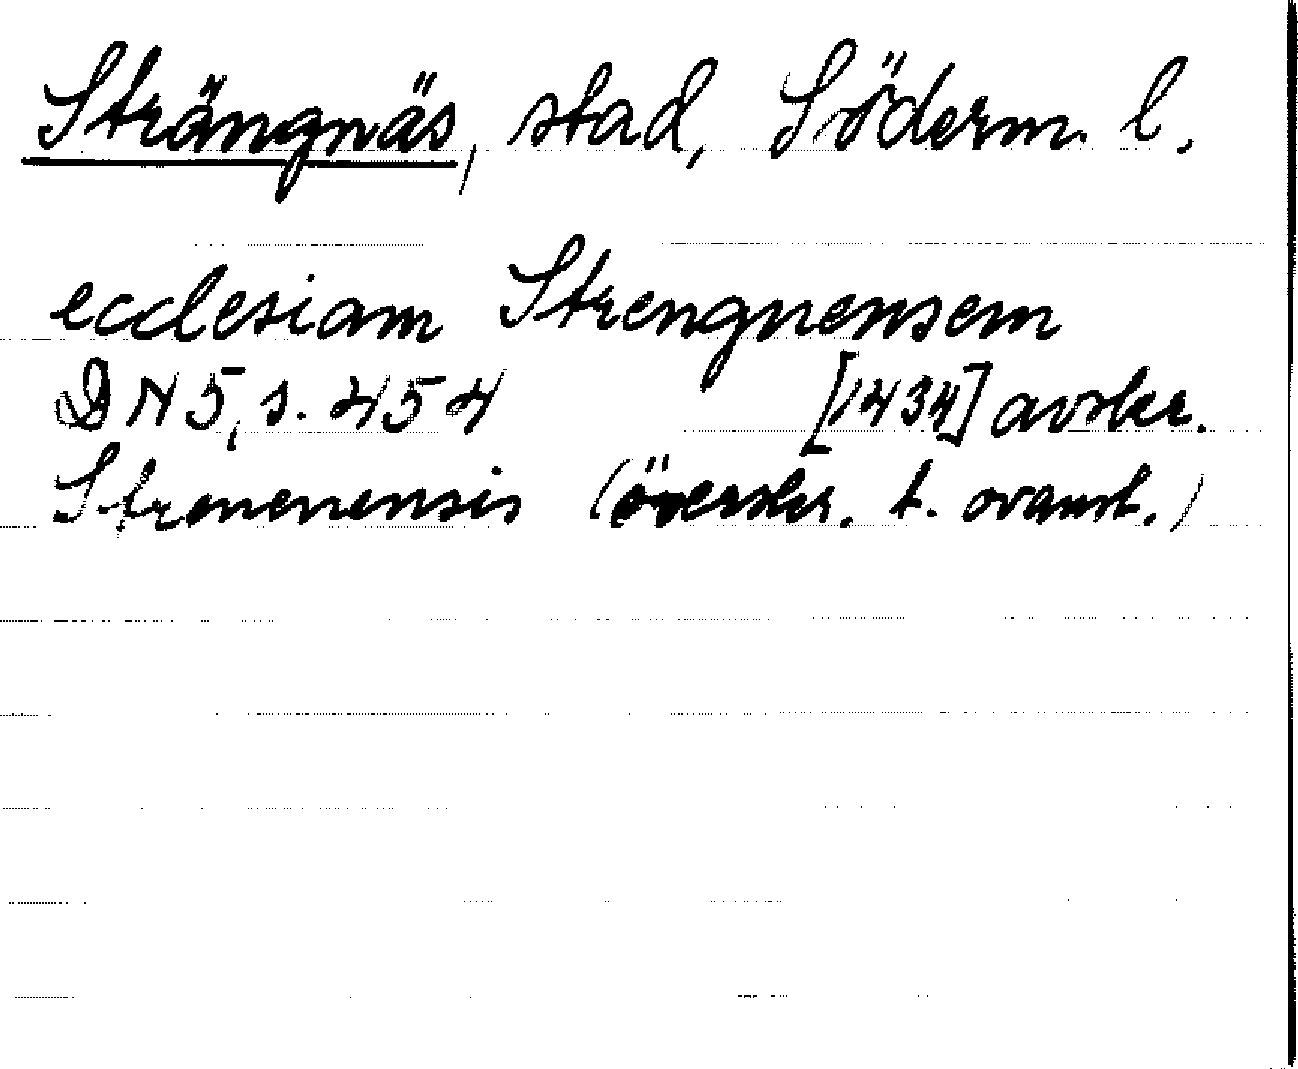 Strängnäs, stad, Söderm. l.
ecclesiam Strengnensem
DN 5, s. 454 [1434] avskr.
Strenenensis (överskr. t. ovanst.)